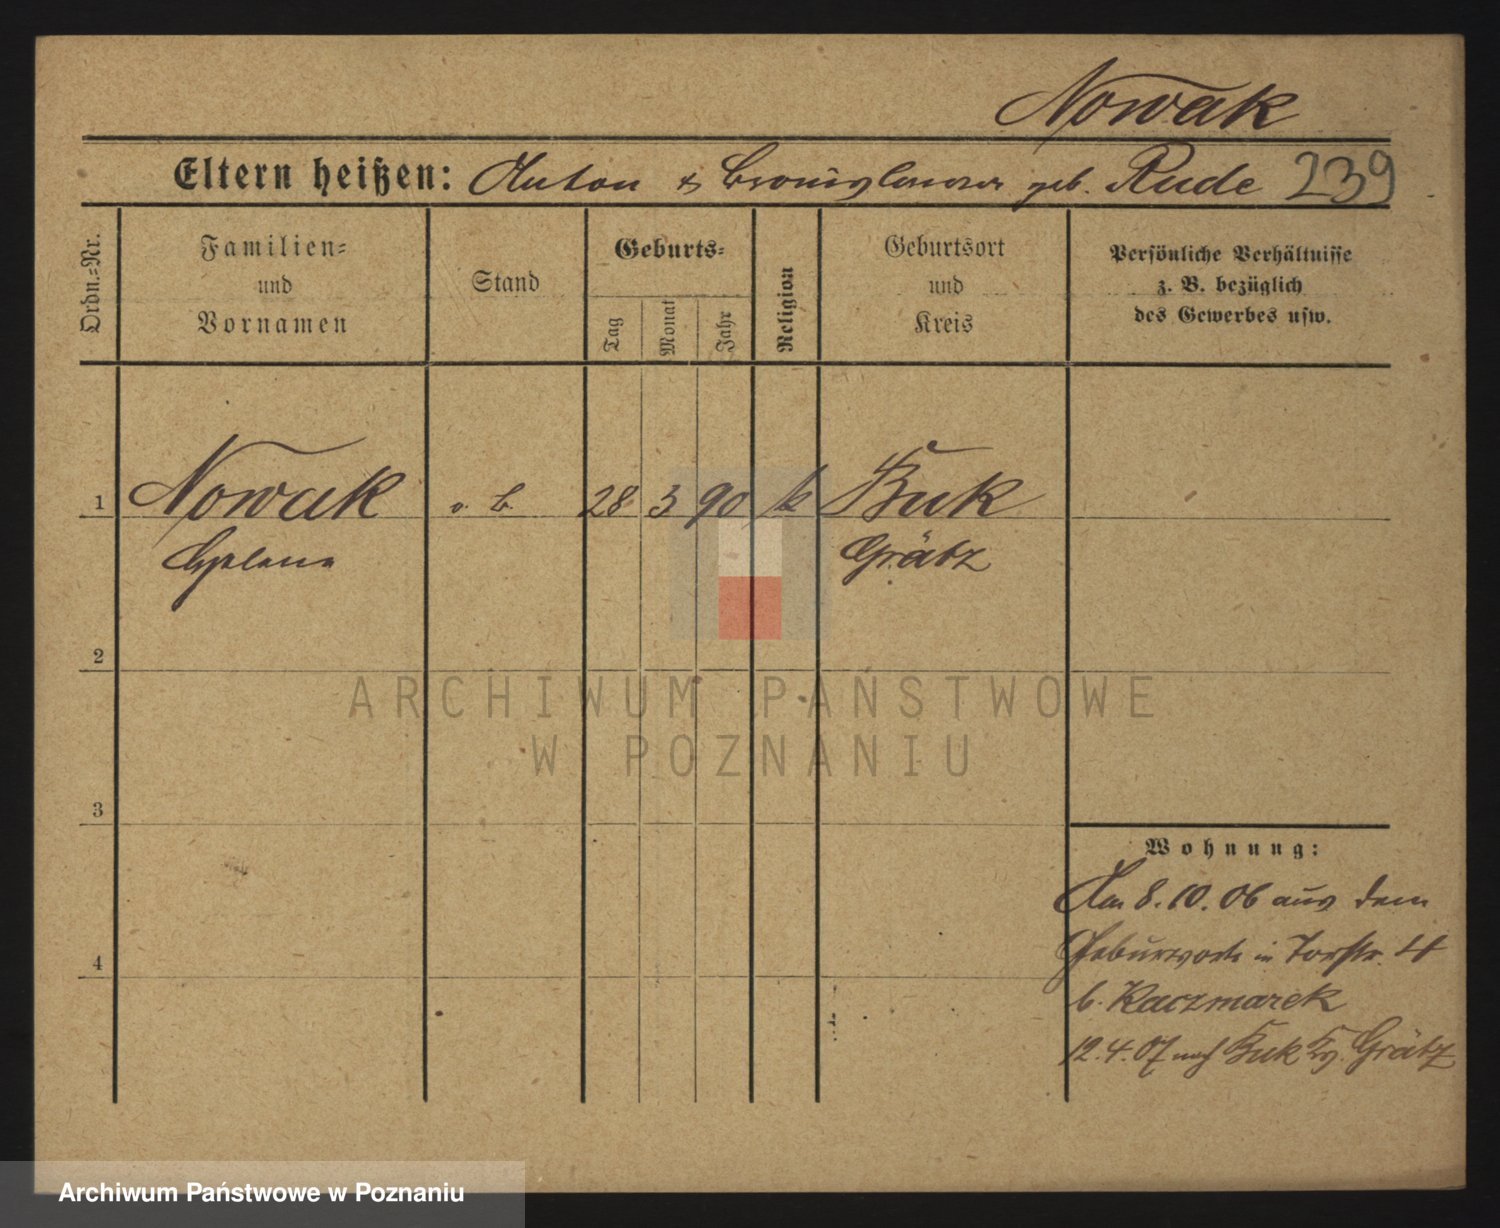 Nowak
Eltern heißen: Anton & Bronislawa geb. Rude 239
Ordn.=Nr.
Familien=
und
Vornamen
Stand
Geburts=
Tag
Monat
Jahr
Religion
Geburtsort
und
Kreis
Persönliche Verhältnisse
z. B. bezüglich
des Gewerbes usw.
1 Nowak o. B. 28 3 90 k Buk
Helene Grätz
2
3
4
Wohnung:
Am 8.10.06 aus dem
Geburtsorte in Torstr. 4
b. Kaczmarek
12.4.07 nach Buk Kr. Grätz
ARCHIWUM PAŃSTWOWE
W POZNANIU
Archiwum Państwowe w Poznaniu